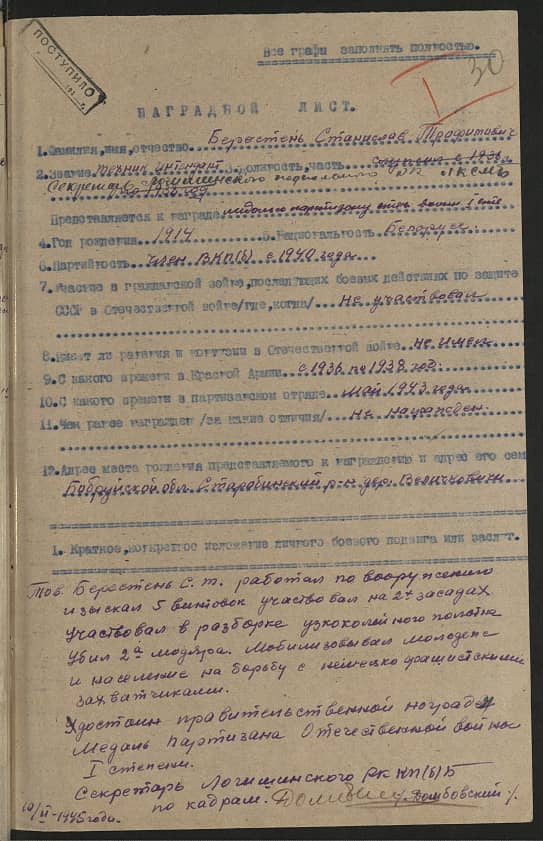 ПОСТУПИЛО
Все графы заполнять полностью.
30
НАГРАДНОЙ ЛИСТ.
1. Фамилия, имя, отчество Берестень Станислав Трофимович
2. Звание техник интендант 3. Должность, часть с 1936 г
Секретарь Логишинского ЛКСМБ
Представляется к награде медалью партизану отеч. войны I степ
4. Год рождения 1914 5. Национальность Беларус
6. Партийность член ВКП(б) с 1940 года
7. Участие в гражданской войне, последующих боевых действиях по защите
СССР в Отечественной войне /где, когда/ не участвовал
8. Имеет ли ранения и контузии в Отечественной войне не имеет
9. С какого времени в Красной Армии с 1936 по 1938 год.
10. С какого времени в партизанском отряде Май 1943 года
11. Чем ранее награжден /за какие отличия/ Не награжден.
12. Адрес места рождения представляемого к награждению и адрес его сем
Бобруйской обл. Старобинский р-н дер. Величковичи
1. Краткое, конкретное изложение личного боевого подвига или заслуг.
Тов. Берестень С. Т. работал по вооружению
изыскал 5 винтовок участвовал на 2х засадах
участвовал в разборке узкоколейного полотна
убил 2а мадяра. Мобилизовывал молодежь
и население на борьбу с немецко фашистскими
захватчиками.
Удостоин правительственной награды
Медаль партизана Отечественной войны
I степени.
Секретарь Логишинского РК КП(б)Б
по кадрам. /Домбовский/.
10/II-1945 годи.